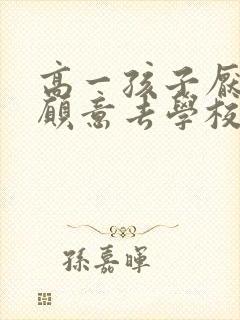 高一孩子厭
願意去學校
孫嘉暉